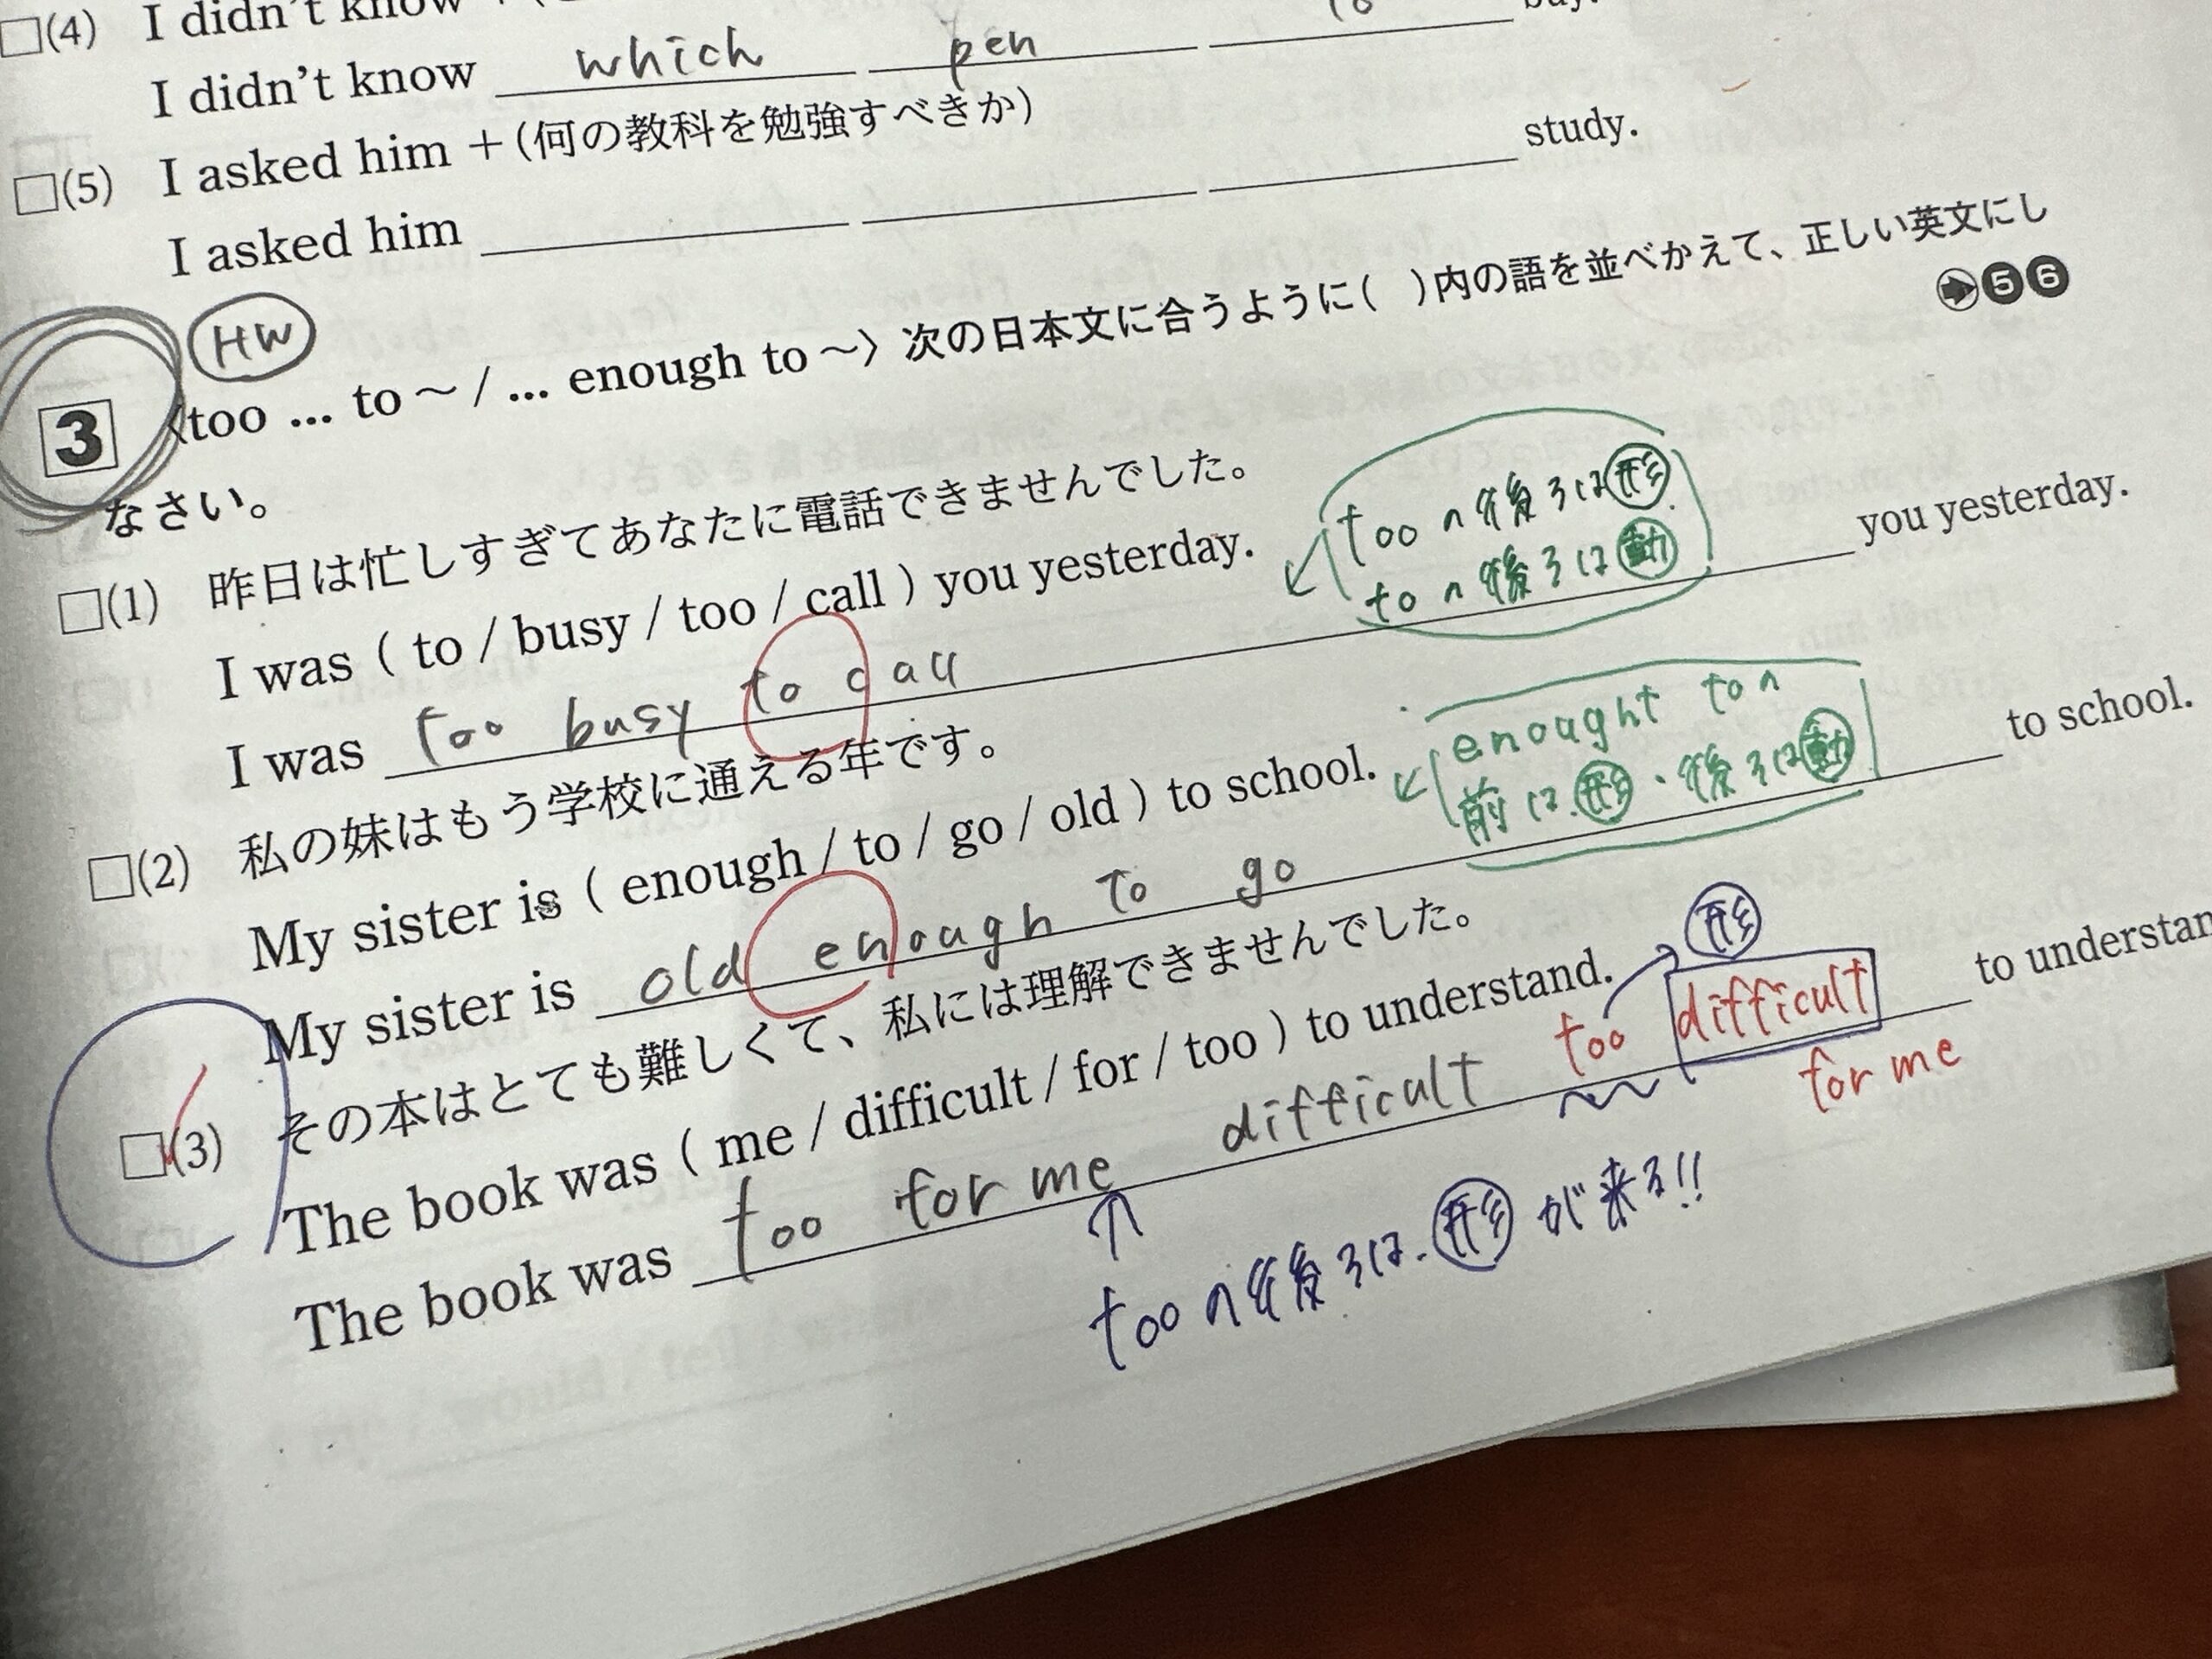 □(4) I didn't know
I didn't know which pen to buy.
□(5) I asked him +(何の教科を勉強すべきか)
I asked him ___ ___ ___ study.
HW
3 〈too … to ～ / … enough to ～〉次の日本文に合うように( )内の語を並べかえて、正しい英文にし
なさい。
➡❺❻
□(1) 昨日は忙しすぎてあなたに電話できませんでした。
I was ( to / busy / too / call ) you yesterday.
tooの後ろは形
toの後ろは動
I was too busy to call you yesterday.
□(2) 私の妹はもう学校に通える年です。
My sister is ( enough / to / go / old ) to school.
enought toの
前は形・後ろは動
My sister is old enough to go to school.
□(3) その本はとても難しくて、私には理解できませんでした。
The book was ( me / difficult / for / too ) to understand.
形
too difficult
for me
The book was too for me difficult to understan
tooの後ろは、形が来る!!